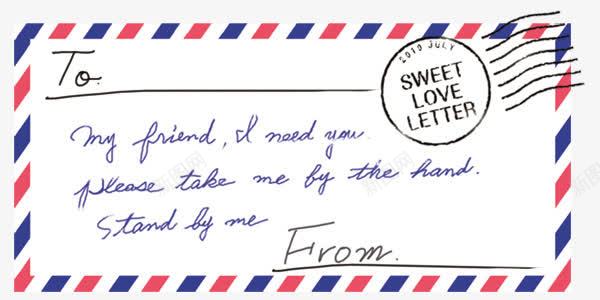 To.
2010 JULY
SWEET
LOVE
LETTER
My friend, I need you.
please take me by the hand.
Stand by me
From.